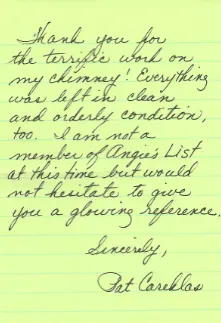 Thank you for
the terrific work on
my chimney! Everything
was left in clean
and orderly condition,
too. I am not a
member of Angie's List
at this time but would
not hesitate to give
you a glowing reference.
Sincerely,
Pat Careklas